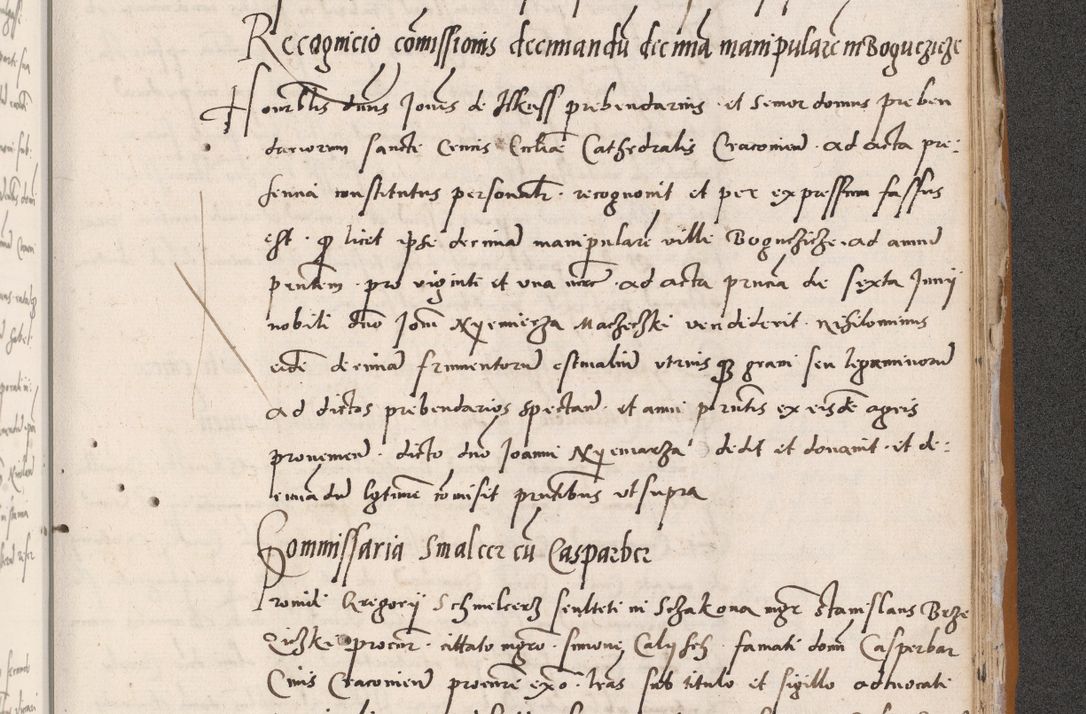 Recognicio comissionis decimandu decima manipulare in Boguczicze
Honorablis duns Joanes de Ilkuss prebendarius et Senior domus preben
dariorum sancte Crucis Ecclie Cathedralis Cracovien ad acta pre-
sencia constitutus personalr recognovit et per expressum fassus
est q licet ipse decimam manipularem ville Boguczicze ad annu
pentem pro viginti et una mrc ad acta pncia die sexta Junij
nobili dno Joani Nyemierza Macheczki vendiderit nihilominus
eide decimam frumentorum estivaliu utriusq grani seu leguminorum
ad dictos prebendarios spectan et anni pntis ex eisde agris
provenien dicto dno Joanni Nyemierza dedit et donavit et de-
cimadu lgtime comisit pntibus ut supra
Commissaria Smalcer cu Casparber
Providi Gregorij Schmelcerz sculteti in Schakona mgr Stanislaus Brze
zichzke procur cittato mgro Simone Calysch famati domi Casperbar
Civis Cracovien procure exo lras sub titulo et sigillo advocati